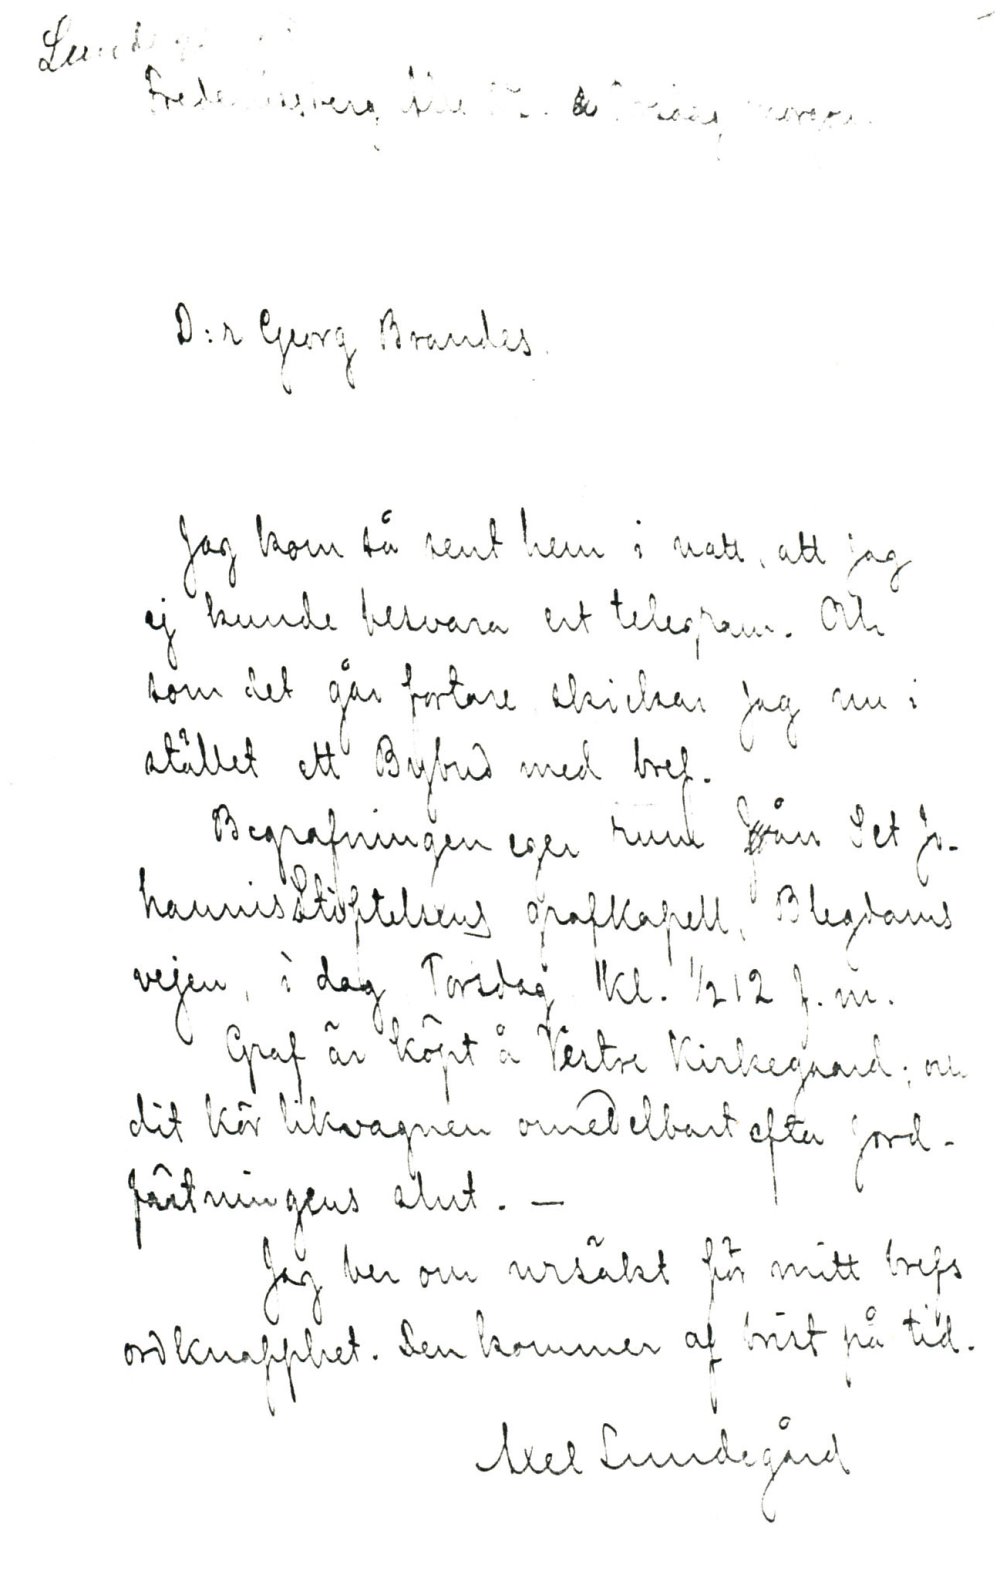 D:r Georg Brandes.
Jag kom så sent hem i natt, att jag
ej kunde besvara ert telegram. Och
som det går fortare skickar jag nu i
stället ett Bybud med bref.
Begrafningen eger rum från Sct Jo-
hannisStiftelsens grafkapell, Blegdams
vejen, i dag Torsdag Kl. 1/2 12 f.m.
Graf är köpt å Vestre Kirkegaard; och
dit kör likvagnen omedelbart efter jord-
fästningens slut. —
Jag ber om ursäkt för mitt brefs
ordknapphet. Den kommer af brist på tid.
Axel Lundegård